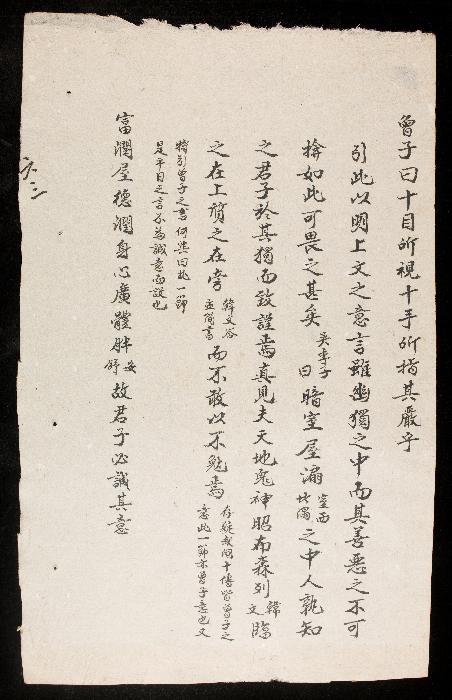 曾子曰十目所視十手所指其嚴乎
引此以明上文之意言雖幽獨之中而其善惡之不可
揜如此可畏之甚矣吳季子曰暗室屋漏室西北隅之中人孰知
之君子於其獨而致謹焉真見夫天地鬼神昭布森列韓文臨
之在上質之在旁韓文公孟簡書而不敢以不勉焉存疑或問十傳皆曾子之
意此一節亦曾子意也又
特引曾子之言何與曰於一節
是平日之言不為誠意而設也
富潤屋德潤身心廣體胖安舒故君子必誠其意